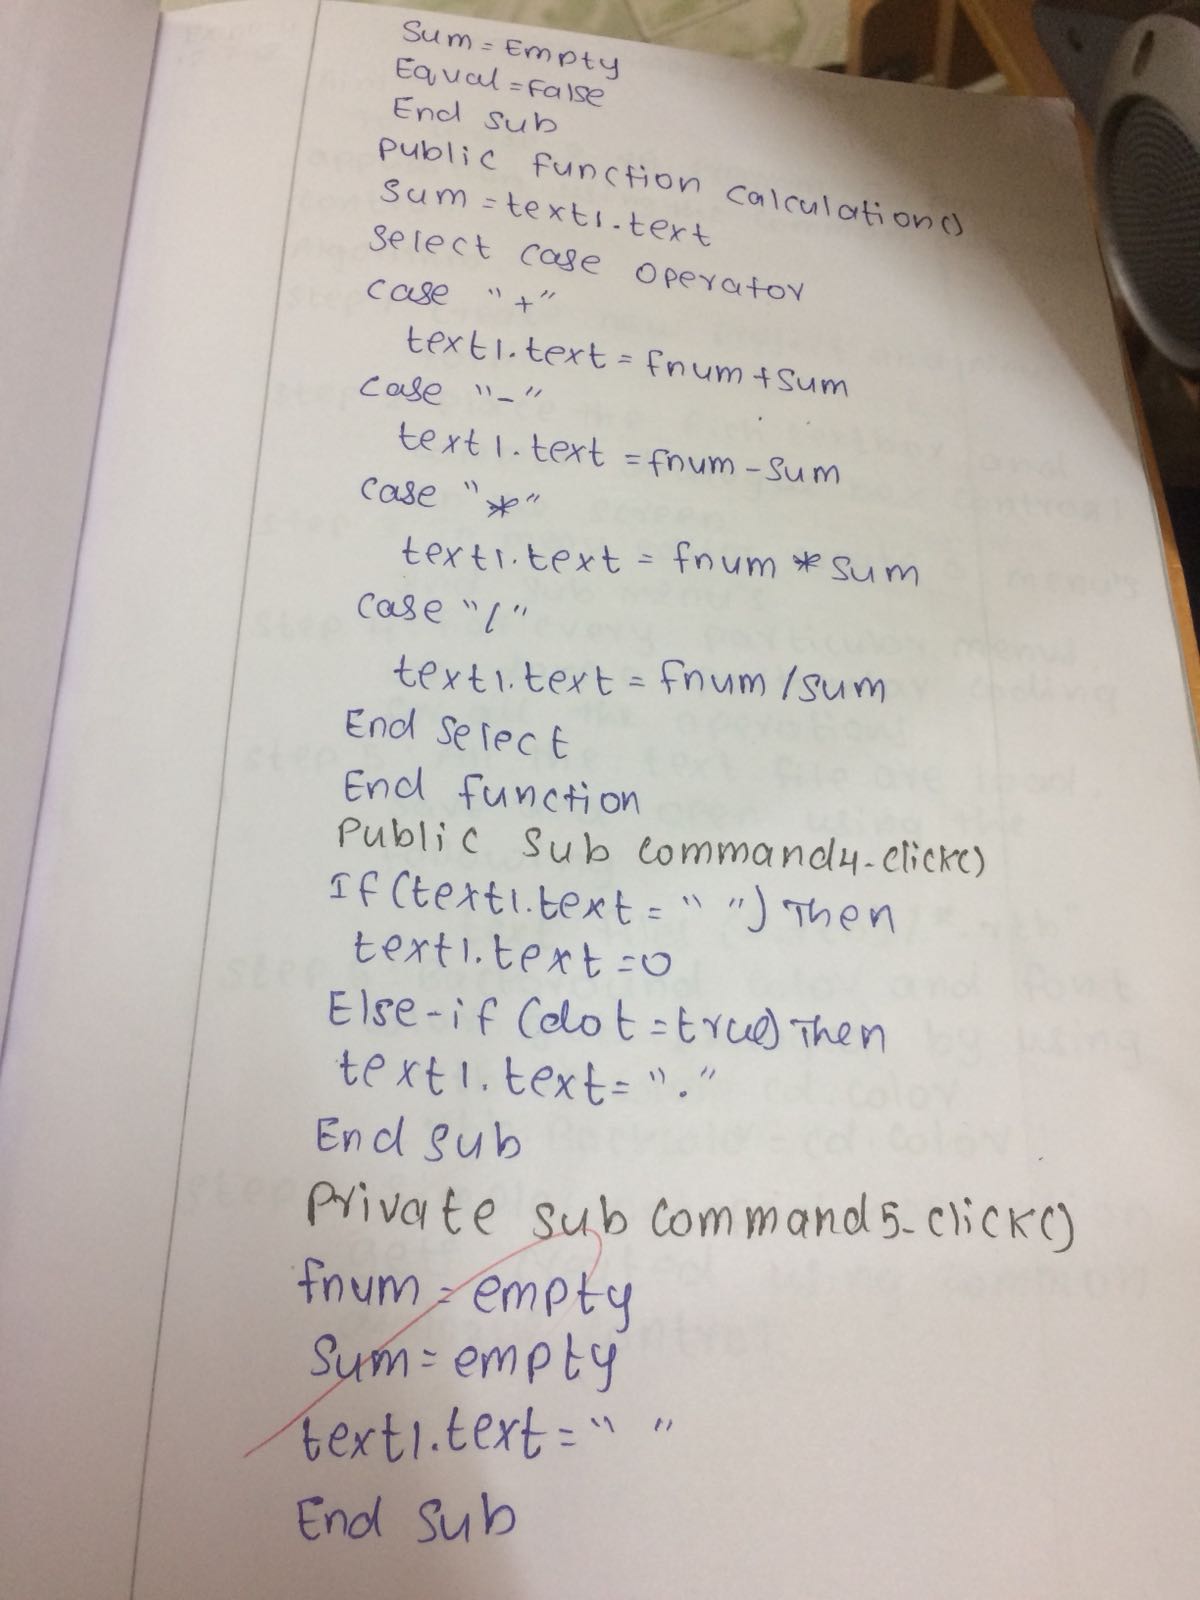 Sum = Empty
Equal = False
End sub
public function calculation()
sum = text1.text
select case operator
case "+"
text1.text = fnum + sum
case "-"
text1.text = fnum - sum
case "*"
text1.text = fnum * sum
case "/"
text1.text = fnum / sum
End select
End function
Public sub command4-click()
If (text1.text = " ") Then
text1.text = 0
Else-if (dot = true) Then
text1.text = "."
End sub
Private sub command5-click()
fnum = empty
sum = empty
text1.text = " "
End sub